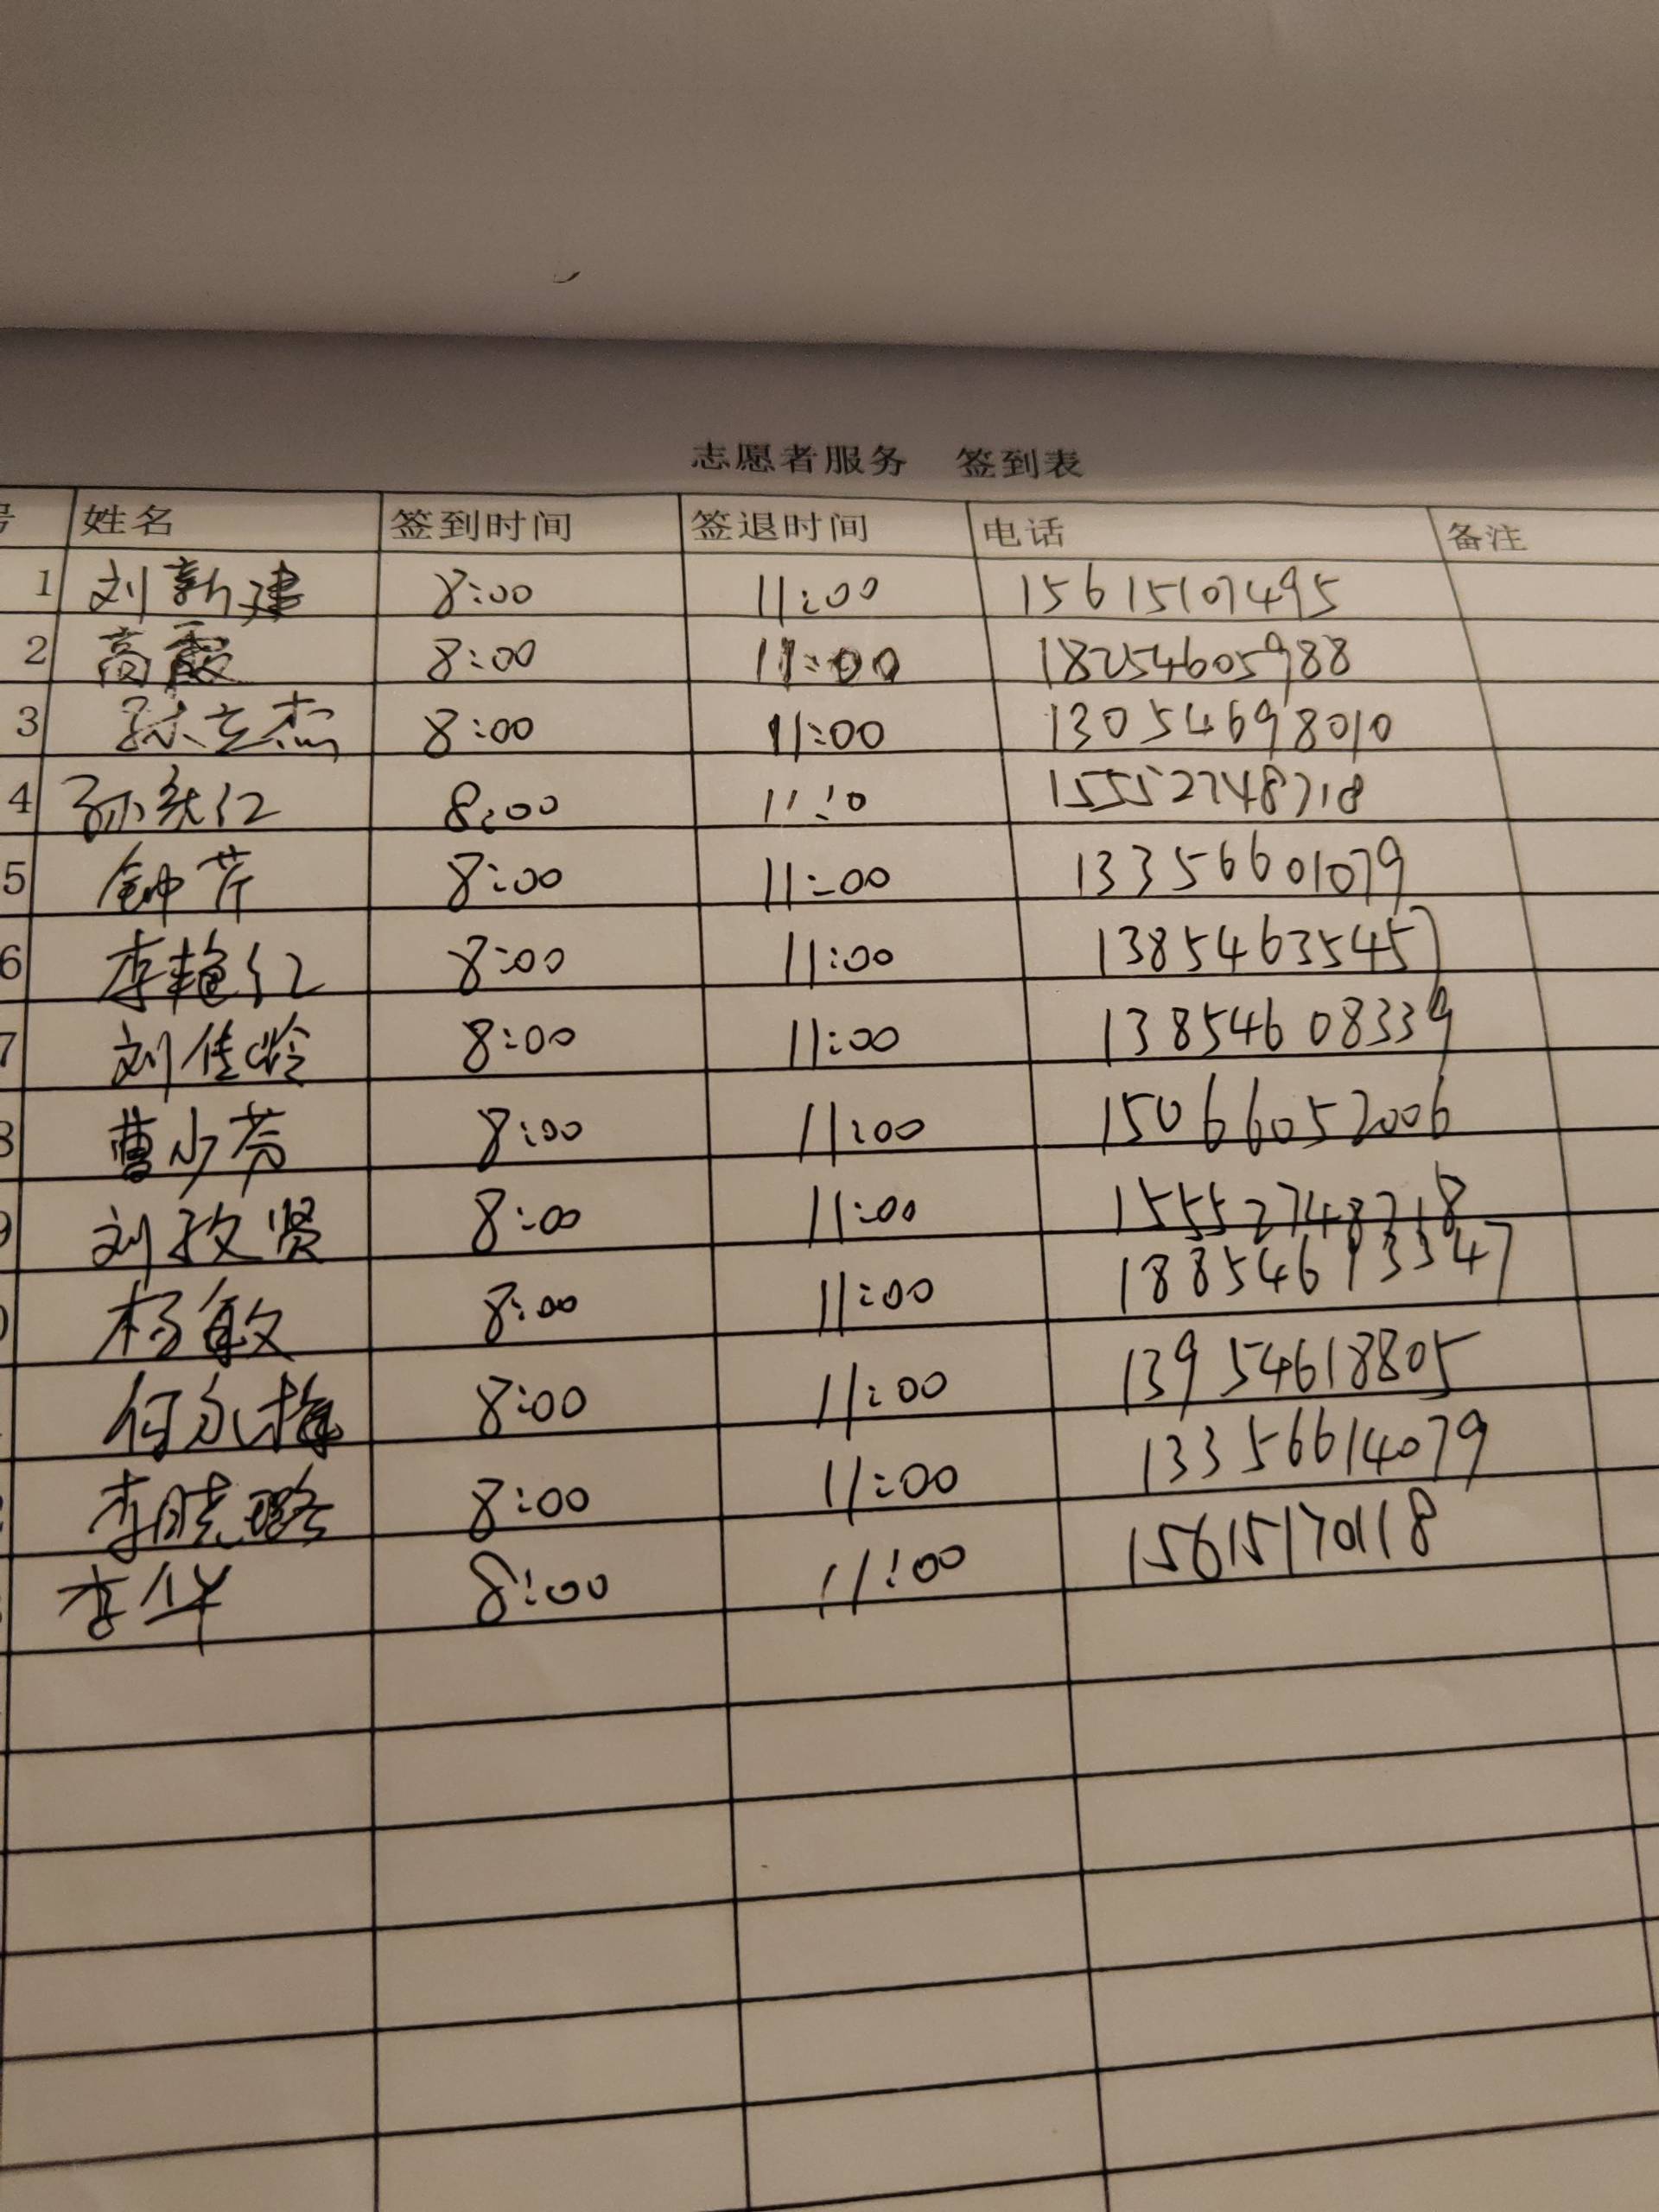 志愿者服务 签到表
号 姓名 签到时间 签退时间 电话 备注
1 刘新建 8:00 11:00 15615107495
2 高霞 8:00 11:00 18254605988
3 孙立杰 8:00 11:00 13054698010
4 8:00 11:10 15552748718
5 钟芹 8:00 11:00 13356601079
6 李艳红 8:00 11:00 13854635457
7 刘佳岭 8:00 11:00 13854608339
8 曹少芳 8:00 11:00 15066052006
9 刘孜贤 8:00 11:00 15552748718
杨敏 8:00 11:00 18854613347
何永梅 8:00 11:00 13954618805
李晓璐 8:00 11:00 13356614079
李华 8:00 11:00 15615170118